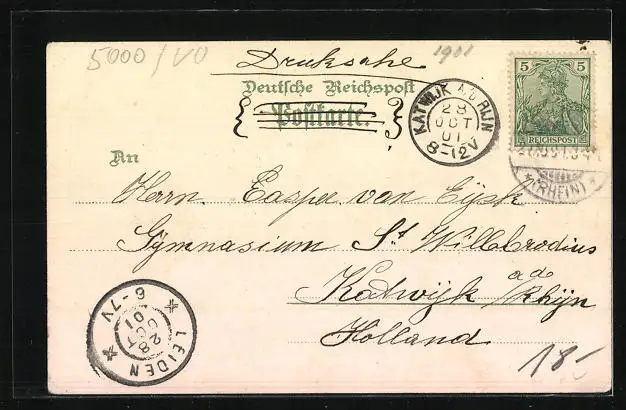 5000/VO
Druksache
1901
Deutsche Reichspost
Postkarte.
5 5
REICHSPOST
KATWIJK A/D RIJN
28
OCT
01
8-12V
(RHEIN)
An
Herrn. Casper van Eijsk
Gÿmnasium St Willebrodius
Katwijk a.d./Rhijn
Holland
LEIDEN
28
OCT
01
6-7V
18-